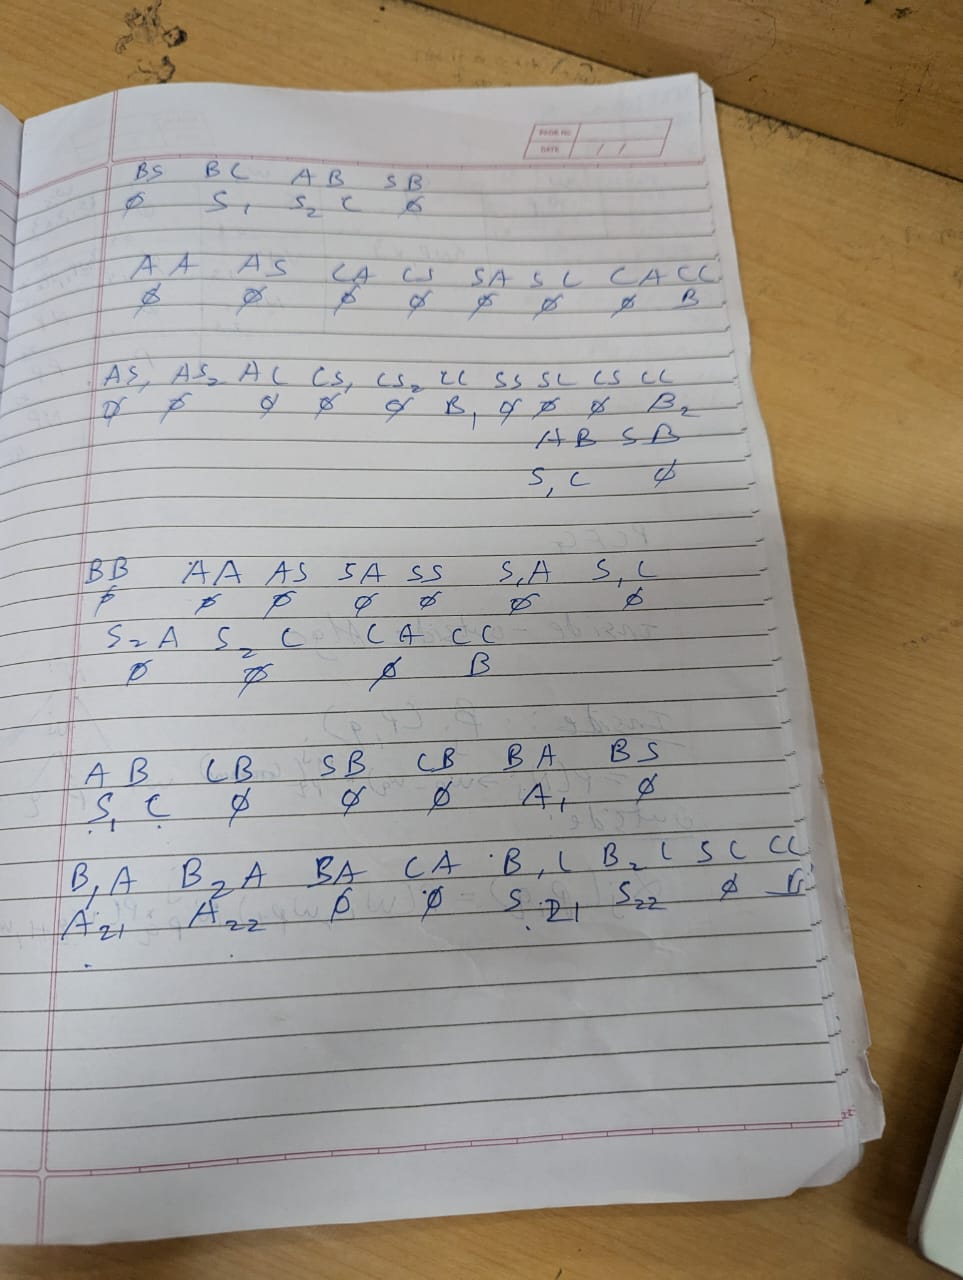 PAGE NO.
DATE / /
BS BC AB SB
∅ S₁ S₂ C ∅
AA AS CA CS SA SC CA CC
∅ ∅ ∅ ∅ ∅ ∅ ∅ B
AS₁ AS₂ AC CS₁ CS₂ CC SS SC CS CC
∅ ∅ ∅ ∅ ∅ B₁ ∅ ∅ ∅ B₂
AB SB
S₁ C ∅
BB AA AS SA SS S₁A S₁C
∅ ∅ ∅ ∅ ∅ ∅ ∅
S₂A S₂C CA CC
∅ ∅ ∅ B
AB CB SB CB BA BS
S₁ C ∅ ∅ ∅ A₁ ∅
B₁A B₂A BA CA B₁C B₂C SC CC
A₂₁ A₂₂ ∅ ∅ S₂₁ S₂₂ ∅ B